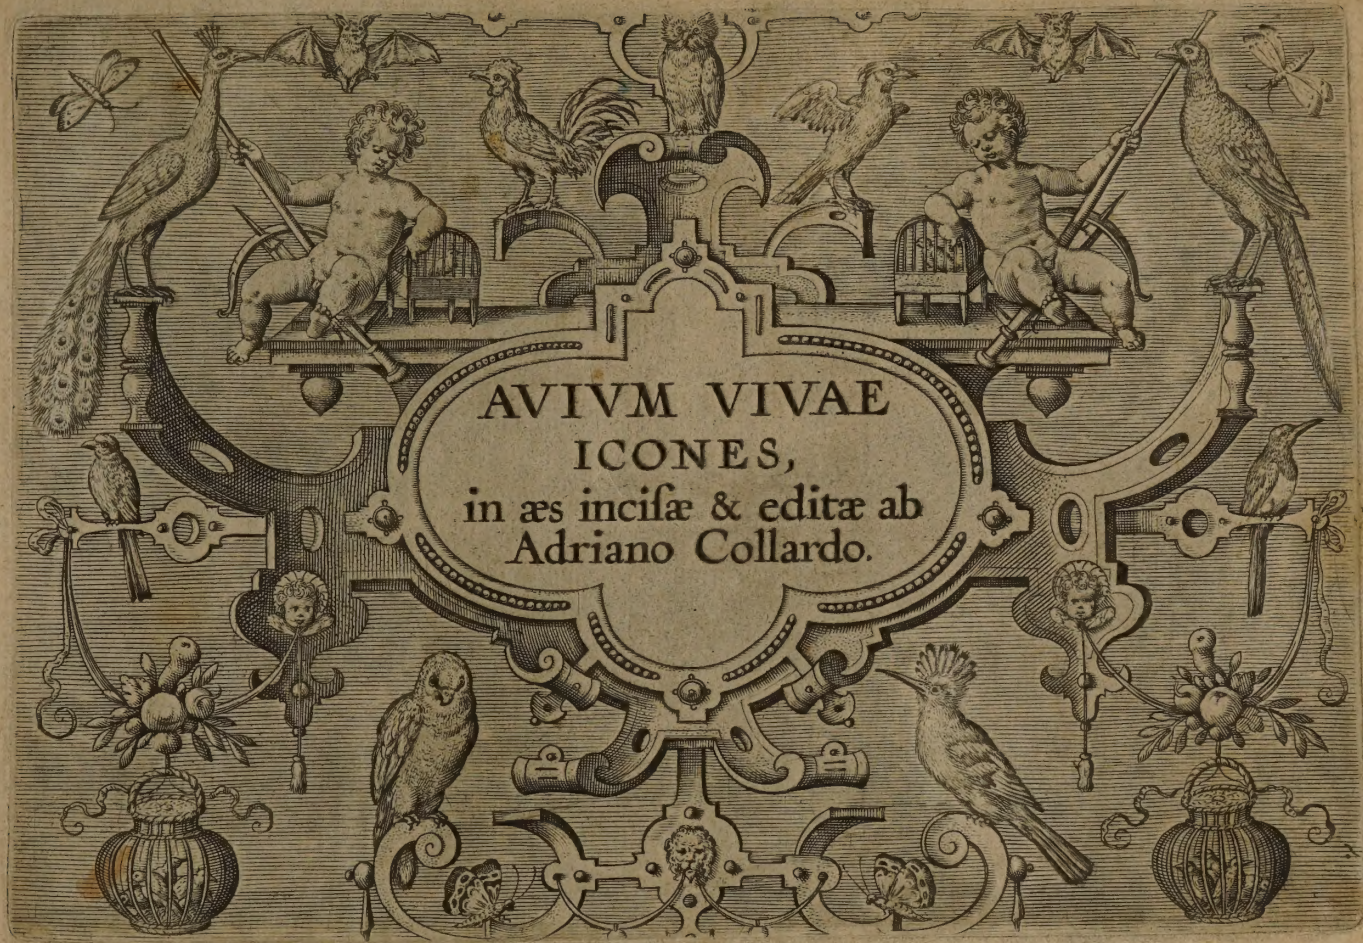 AVIVM VIVAE
ICONES,
in æs inciſæ & editæ ab
Adriano Collardo.